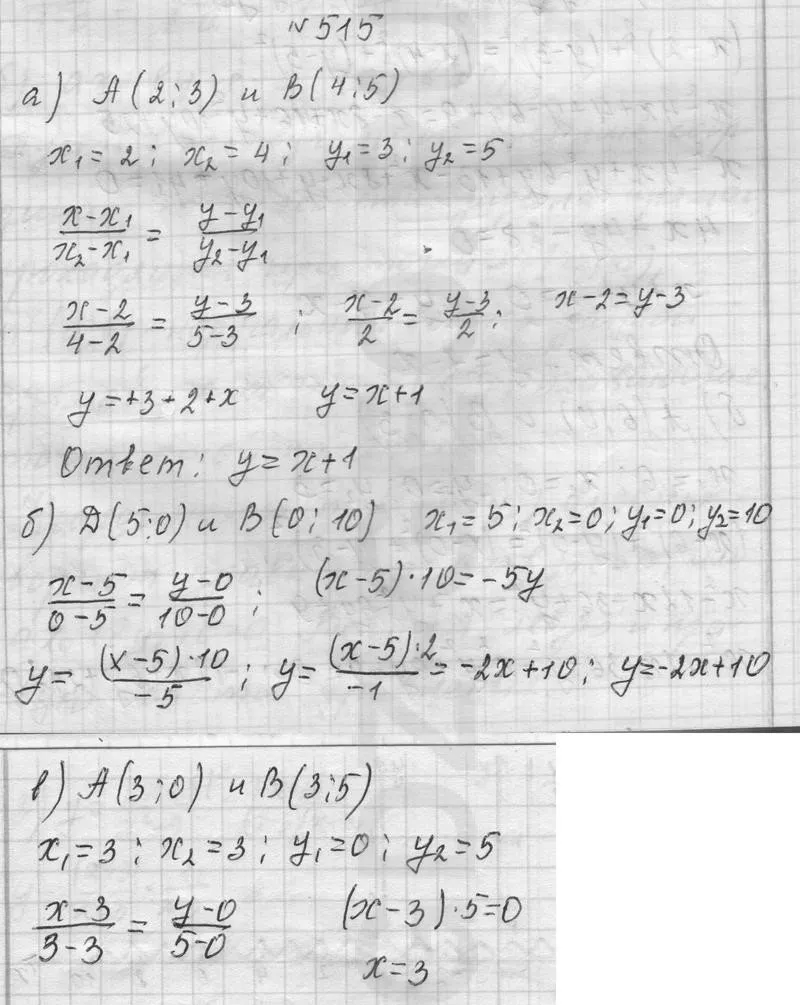 №515
а) A(2;3) и B(4;5)
x₁=2; x₂=4; y₁=3; y₂=5
(x-x₁)/(x₂-x₁) = (y-y₁)/(y₂-y₁)
(x-2)/(4-2) = (y-3)/(5-3) ; (x-2)/2 = (y-3)/2; x-2=y-3
y=+3+2+x y=x+1
Ответ: y=x+1
б) Д(5;0) и B(0;10) x₁=5; x₂=0; y₁=0; y₂=10
(x-5)/(0-5) = (y-0)/(10-0) ; (x-5)·10=-5y
y= ((x-5)·10)/(-5) ; y= ((x-5)·2)/(-1) = -2x+10; y=-2x+10
в) A(3;0) и B(3;5)
x₁=3; x₂=3; y₁=0; y₂=5
(x-3)/(3-3) = (y-0)/(5-0) (x-3)·5=0
x=3